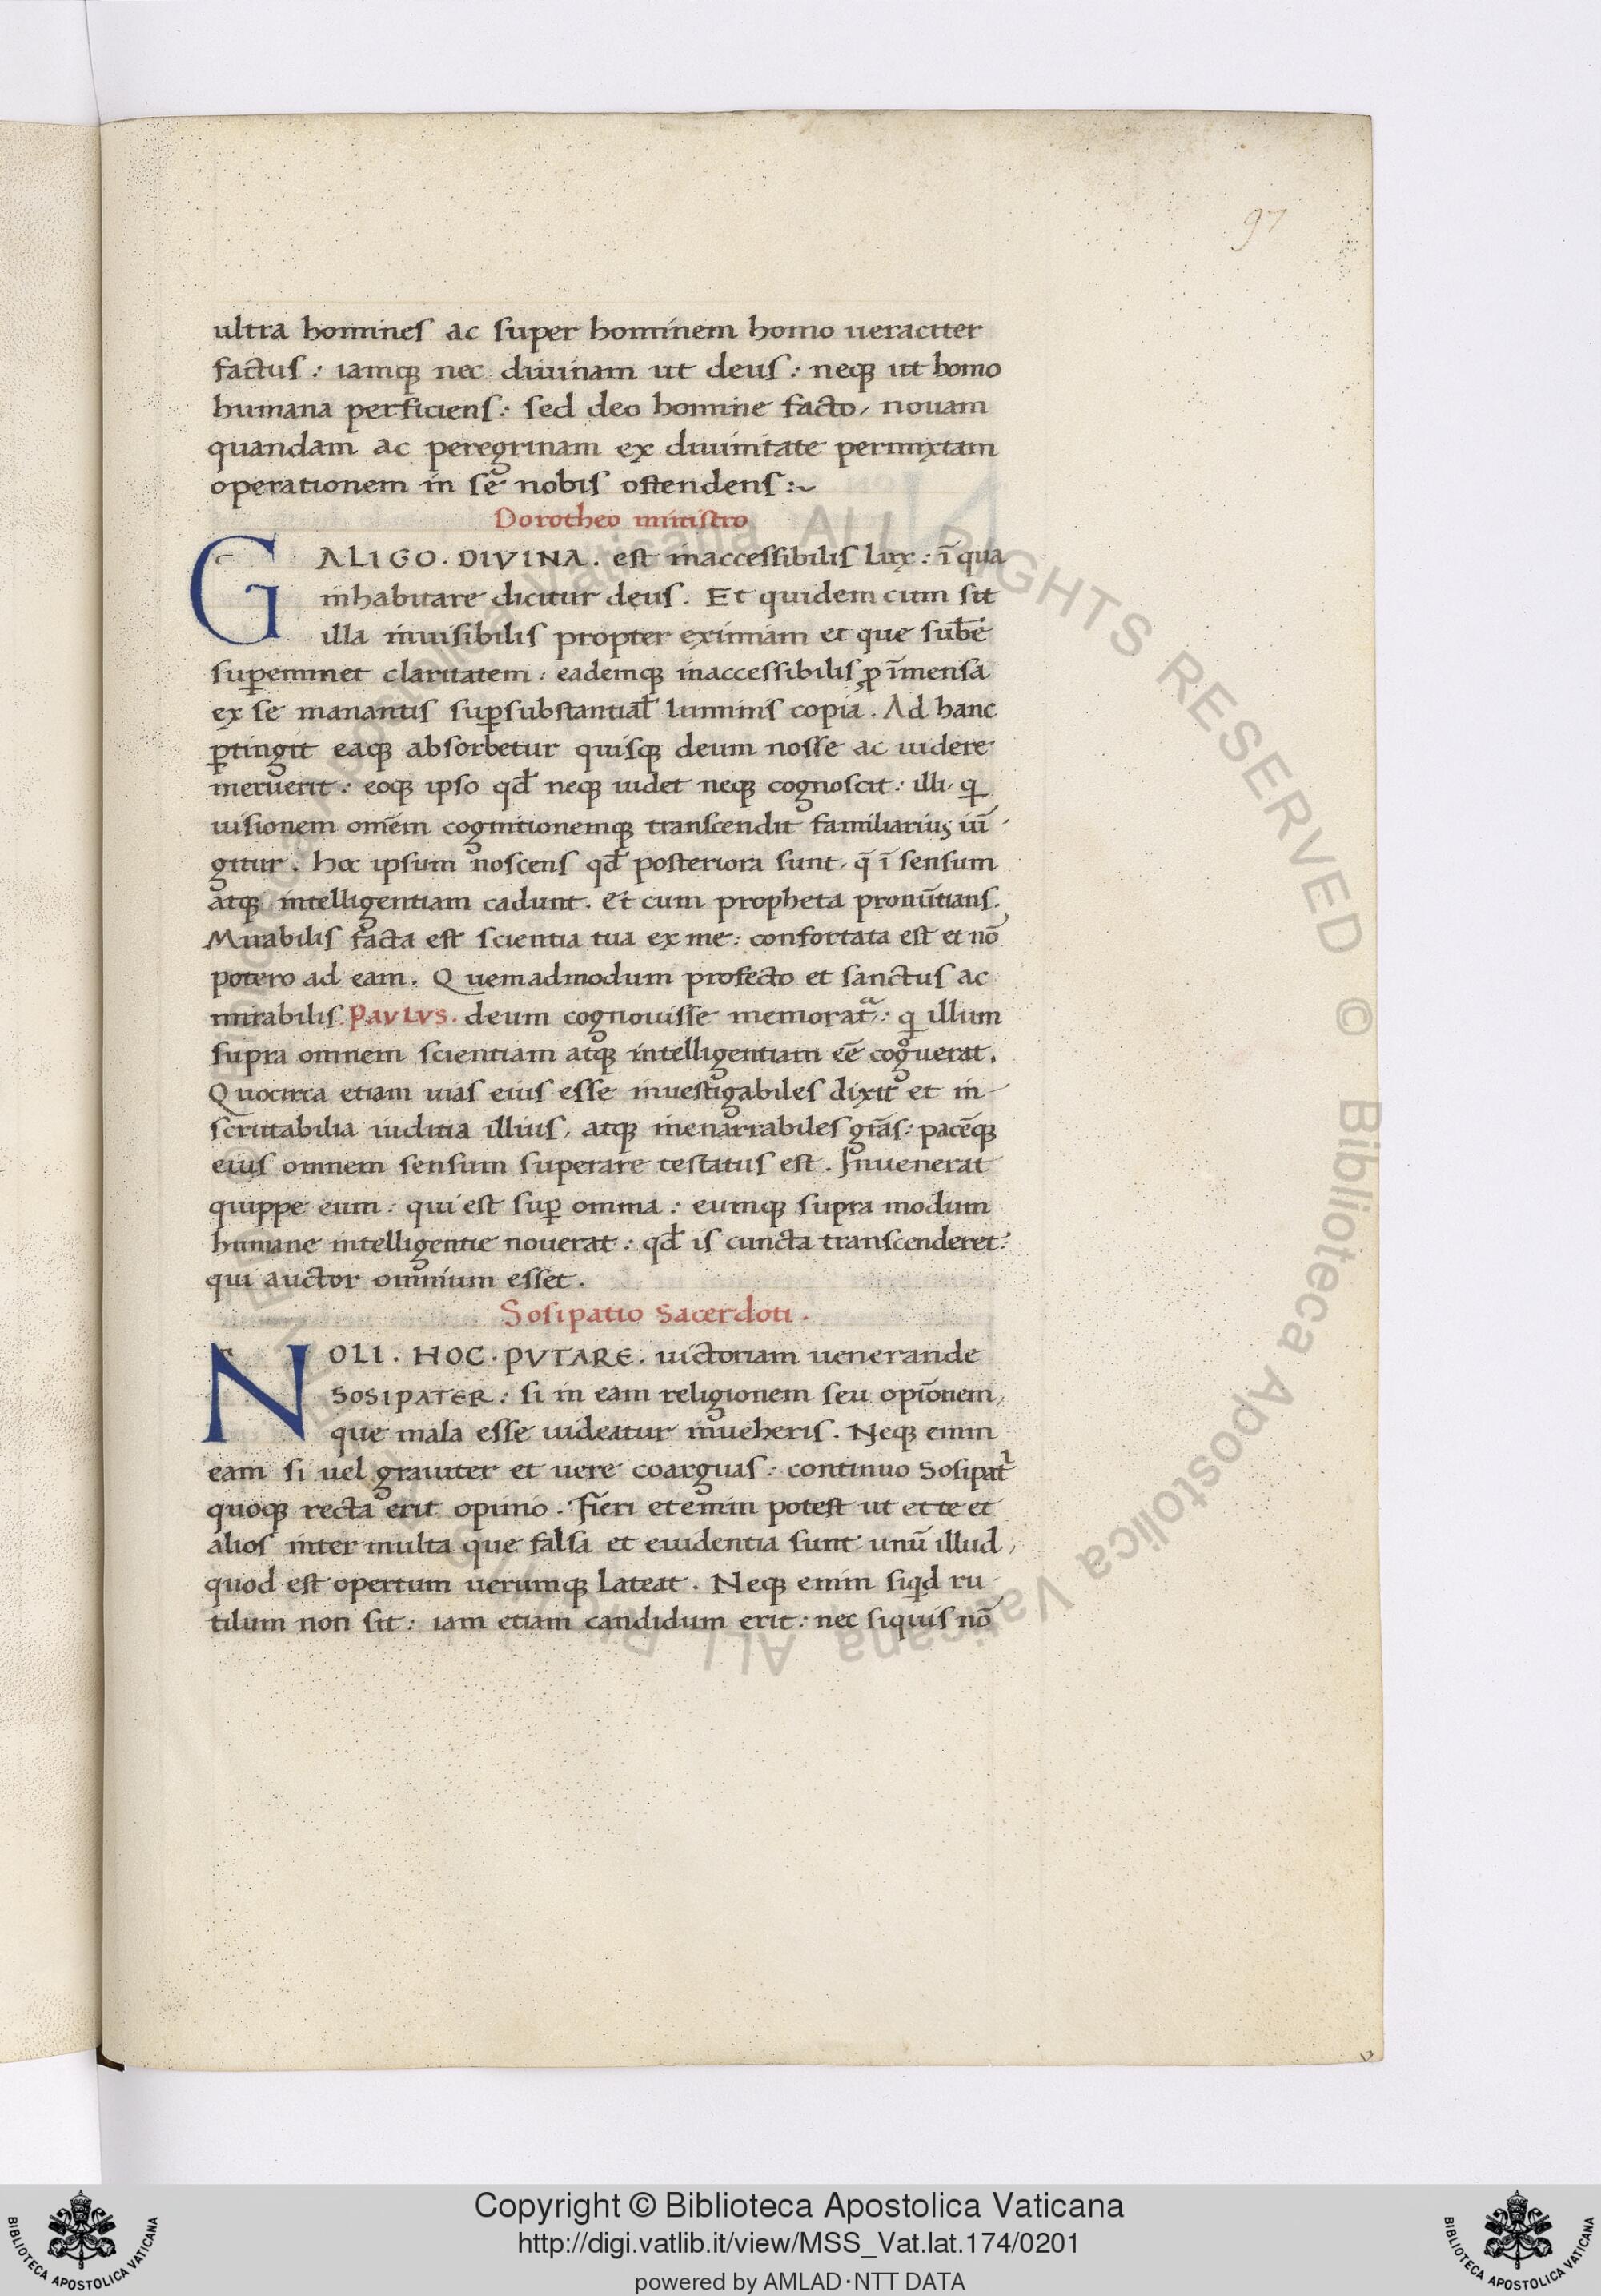 97
ultra homines ac super hominem homo ueraciter
factus : iamqꝫ nec diuinam ut deus : neqꝫ ut homo
humana perficiens : sed deo homine facto, nouam
quandam ac peregrinam ex diuinitate permixtam
operationem in se nobis ostendens :~
Dorotheo ministro
GALIGO . DIVINA . est inaccessibilis lux : ī qua
inhabitare dicitur deus . Et quidem cum sit
illa inuisibilis propter eximiam et que subē
suꝑeminet claritatem : eademqꝫ inaccessibilis ꝓ īmensa
ex se manantis suꝑsubstantial̄ luminis copia . Ad hanc
ꝑtingit eaqꝫ absorbetur quisqꝫ deum nosse ac uidere
meruerit : eoqꝫ ipso qd̄ neqꝫ uidet neqꝫ cognoscit : illi, ꝗ
uisionem omēm cognitionemqꝫ transcendit familiarius iū
gitur . hoc ipsum noscens qd̄ posteriora sunt, q̄ ī sensum
atqꝫ intelligentiam cadunt . et cum propheta pronūtians .
Mirabilis facta est scientia tua ex me : confortata est et nō
potero ad eam . Quemadmodum profecto et sanctus ac
mirabilis PAVLVS . deum cognouisse memoratᵃ : ꝗ illum
supra omnem scientiam atqꝫ intelligentiam eē cogᵒuerat .
Quocirca etiam uias eius esse inuestigabiles dixit et in
scrutabilia iuditia illius, atqꝫ inenarrabiles grās : pacēqꝫ
eius omnem sensum superare testatus est . Inuenerat
quippe eum : qui est suꝑ omnia : eumqꝫ supra modum
humane intelligentie nouerat : qd̄ is cuncta transcenderet :
qui auctor omnium esset .
Sosipatio sacerdoti .
NOLI . HOC . PVTARE . uictoriam uenerande
SOSIPATER : si in eam religionem seu opiōnem,
que mala esse uideatur inueheris . Neqꝫ enim
eam si uel grauiter et uere coarguas : continuo Sosipat᷑
quoqꝫ recta erit opinio . Fieri etenim potest ut et te et
alios inter multa que falsa et euidentia sunt unū illud,
quod est opertum uerumqꝫ lateat . Neqꝫ enim siꝗd ru
tilum non sit : iam etiam candidum erit : nec siquis nō
Vaticana ALL RIGHTS RESERVED © Biblioteca Apostolica Vaticana ALL
BIBLIOTECA APOSTOLICA VATICANA
Copyright © Biblioteca Apostolica Vaticana
http://digi.vatlib.it/view/MSS_Vat.lat.174/0201
powered by AMLAD·NTT DATA
BIBLIOTECA APOSTOLICA VATICANA